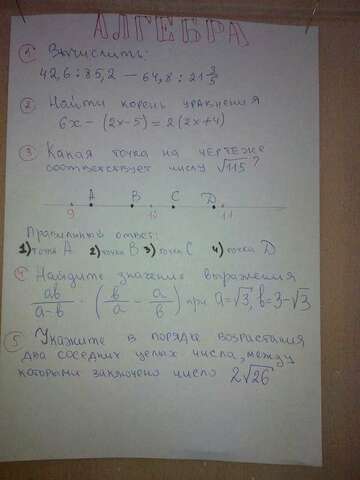 АЛГЕБРА
① Вычислить:
42,6 : 85,2 – 64,8 : 21 3/5
② Найти корень уравнения
6x – (2x-5) = 2(2x+4)
③ Какая точка на чертеже
соответствует числу √115?
A B C D
9 10 11
Правильный ответ:
1) точка A 2) точка B 3) точка C 4) точка D
4 Найдите значение выражения
ab/(a-b) · (b/a – a/b) при a=√3, b=3-√3
⑤ Укажите в порядке возрастания
два соседних целых числа, между
которыми заключено число 2√26